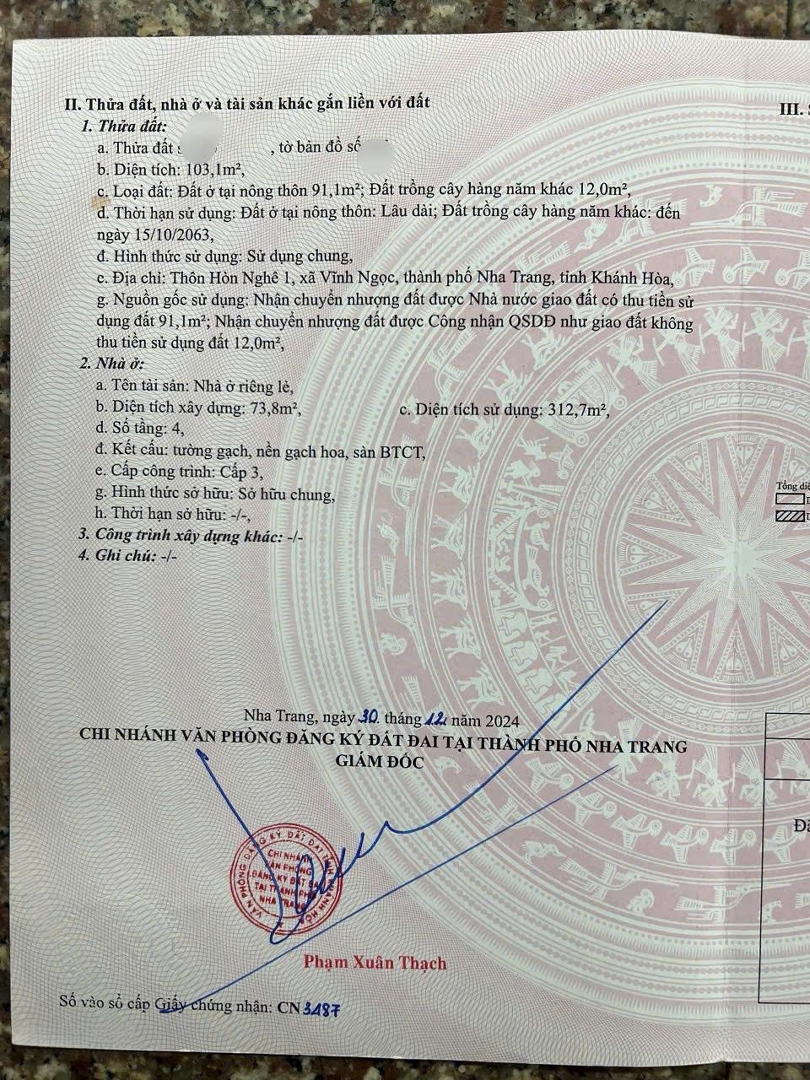 II. Thửa đất, nhà ở và tài sản khác gắn liền với đất
1. Thửa đất:
a. Thửa đất , tờ bản đồ số
b. Diện tích: 103,1m²,
c. Loại đất: Đất ở tại nông thôn 91,1m²; Đất trồng cây hàng năm khác 12,0m²,
d. Thời hạn sử dụng: Đất ở tại nông thôn: Lâu dài; Đất trồng cây hàng năm khác: đến
ngày 15/10/2063,
đ. Hình thức sử dụng: Sử dụng chung,
e. Địa chỉ: Thôn Hòn Nghê 1, xã Vĩnh Ngọc, thành phố Nha Trang, tỉnh Khánh Hòa,
g. Nguồn gốc sử dụng: Nhận chuyển nhượng đất được Nhà nước giao đất có thu tiền sử
dụng đất 91,1m²; Nhận chuyển nhượng đất được Công nhận QSDĐ như giao đất không
thu tiền sử dụng đất 12,0m²,
2. Nhà ở:
a. Tên tài sản: Nhà ở riêng lẻ,
b. Diện tích xây dựng: 73,8m², c. Diện tích sử dụng: 312,7m²,
d. Số tầng: 4,
đ. Kết cấu: tường gạch, nền gạch hoa, sàn BTCT,
e. Cấp công trình: Cấp 3,
g. Hình thức sở hữu: Sở hữu chung,
h. Thời hạn sở hữu: -/-,
3. Công trình xây dựng khác: -/-
4. Ghi chú: -/-
Nha Trang, ngày 30 tháng 12 năm 2024
CHI NHÁNH VĂN PHÒNG ĐĂNG KÝ ĐẤT ĐAI TẠI THÀNH PHỐ NHA TRANG
GIÁM ĐỐC
VĂN PHÒNG ĐĂNG KÝ ĐẤT ĐAI TỈNH KHÁNH HÒA
CHI NHÁNH
VĂN PHÒNG
ĐĂNG KÝ ĐẤT
TẠI THÀNH PHỐ
NHA TRANG
Phạm Xuân Thạch
Số vào sổ cấp Giấy chứng nhận: CN 3187
III.
Tổng